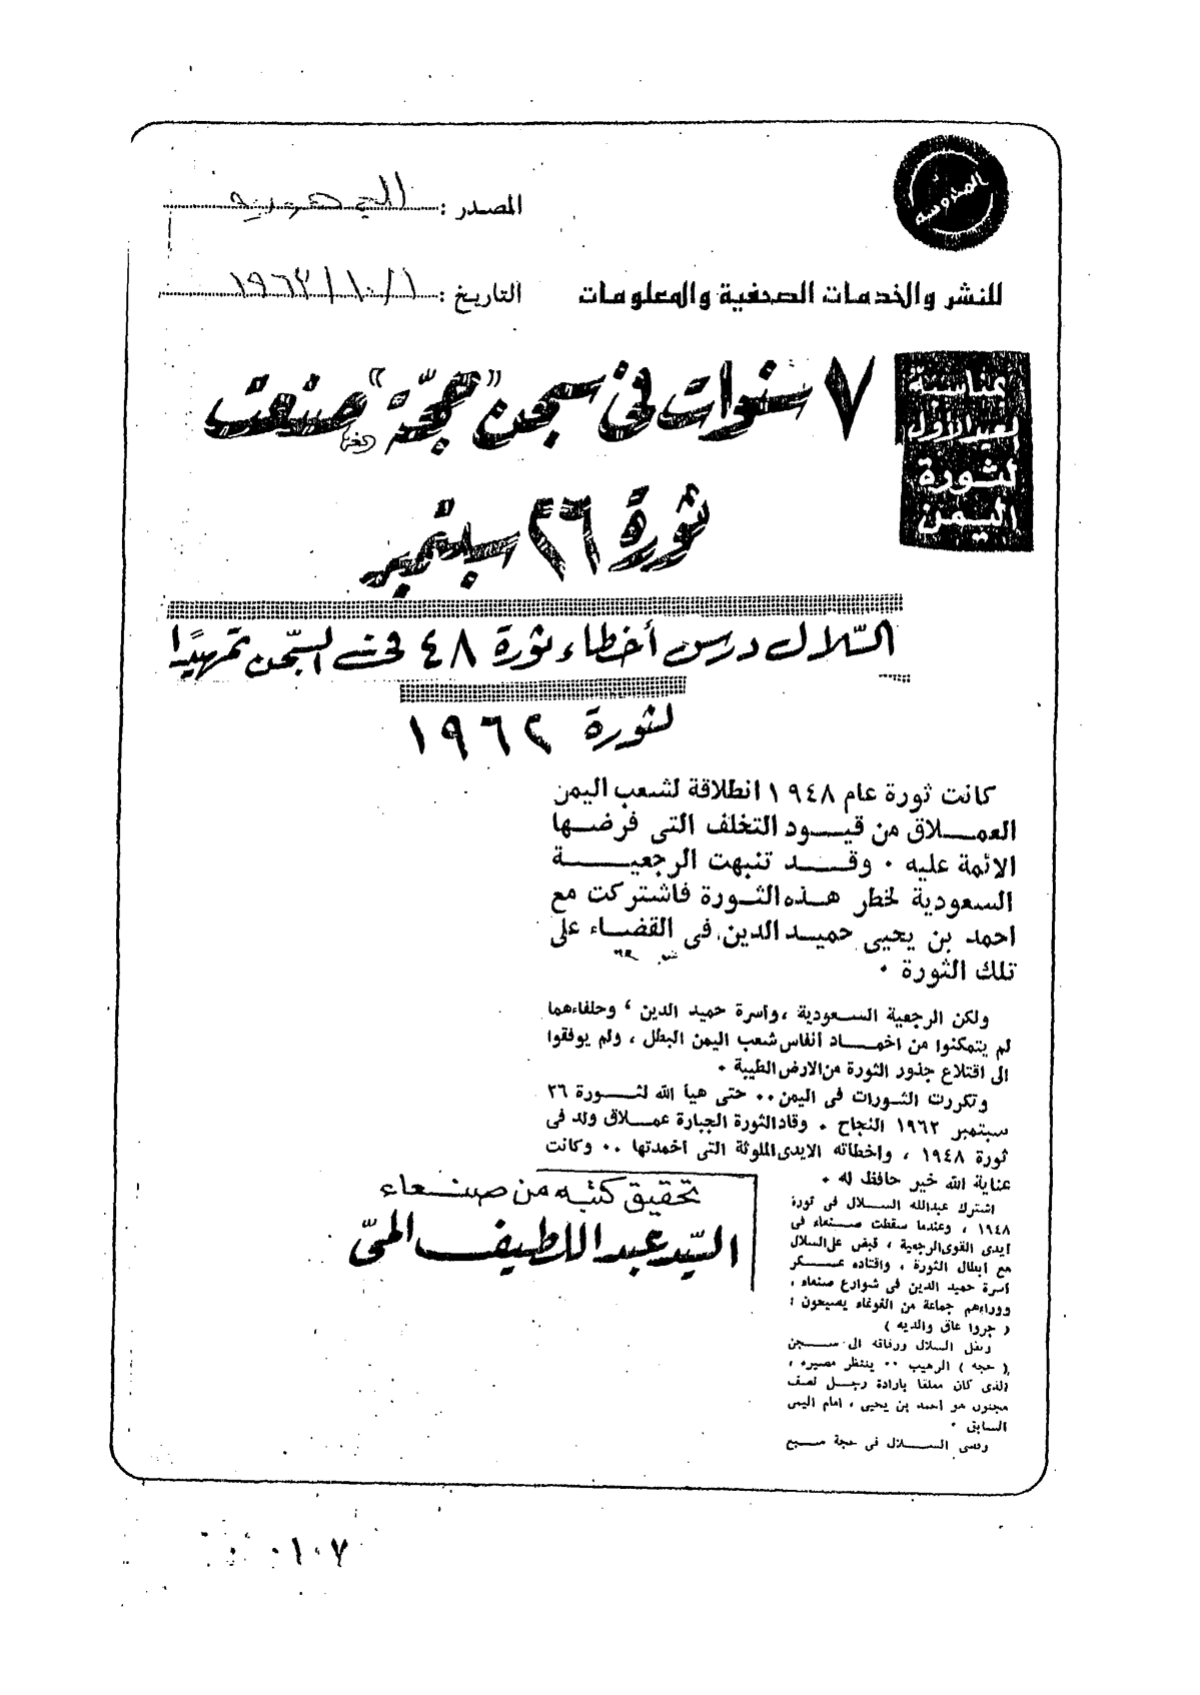 المحروسة
المصدر : الجمهورية
للنشر والخدمات الصحفية والمعلومات
التاريخ : ١ / ١٠ / ١٩٦٣
بمناسبة
العيد الأول
لثورة
اليمن
٧ سنوات في سجن "حجّة" صنعت
ثورة ٢٦ سبتمبر
السّلال درس أخطاء ثورة ٤٨ في السّجن تمهيدًا
لثورة ١٩٦٢
كانت ثورة عام ١٩٤٨ انطلاقة لشعب اليمن
العمـــلاق من قيــود التخلف التى فرضــها
الائمة عليه ٠ وقــد تنبهت الرجعيـــــة
السعودية لخطر هــذه الثــورة فاشتركت مع
احمد بن يحيى حميــد الدين فى القضــاء على
تلك الثورة ٠
ولكن الرجعية الســعودية ، واسرة حميد الدين ، وحلفاءهما
لم يتمكنوا من اخمــاد أنفاس شعب اليمن البطل ، ولم يوفقوا
الى اقتلاع جذور الثورة من الارض الطيبة ٠
وتكررت الثــورات فى اليمن ٠٠ حتى هيأ الله لثــورة ٢٦
سبتمبر ١٩٦٢ النجاح ٠ وقاد الثورة الجبارة عمــلاق ولد فى
ثورة ١٩٤٨ ، واخطاته الايدى الملوثة التى اخمدتها ٠٠ وكانت
عناية الله خير حافظ له ٠
تحقيق كتبه من صنــعاء
السّيّد عبد اللطيف
اشترك عبدالله الســلال فى ثورة
١٩٤٨ ، وعندما سقطت صــنعاء فى
ايدى القوى الرجعية ، قبض على السلال
مع ابطال الثورة ، واقتاده عســكر
اسرة حميد الدين فى شوارع صنعاء ،
ووراءهم جماعة من الغوغاء يصيحون :
( جروا عاق والديه )
ونقل السلال ورفاقه الى ســجن
( حجه ) الرهيب ٠٠ ينتظر مصيره ،
الذى كان معلقا بارادة رجــل نصف
مجنون هو احمد بن يحيى ، امام اليمن
السابق ٠
وقضى الســلال فى حجة ســبع
٠١٠٧